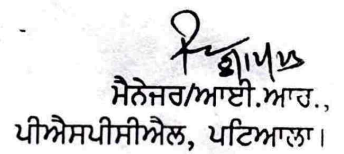 ਮੈਨੇਜਰ/ਆਈ.ਆਰ.,
ਪੀਐਸਪੀਸੀਐਲ, ਪਟਿਆਲਾ।